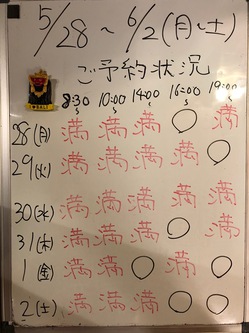 5/28〜6/2(月〜土)
ご予約状況
8:30〜 10:00〜 14:00〜 16:00〜 19:00〜
28(月) 満 満 満 ○ 満
29(火) 満 満 満 満 ○
30(水) 満 満 満 満 満
31(木) 満 満 満 ○ 満
1(金) 満 満 ○ 満 ○
2(土) 満 満 満 ○ ○